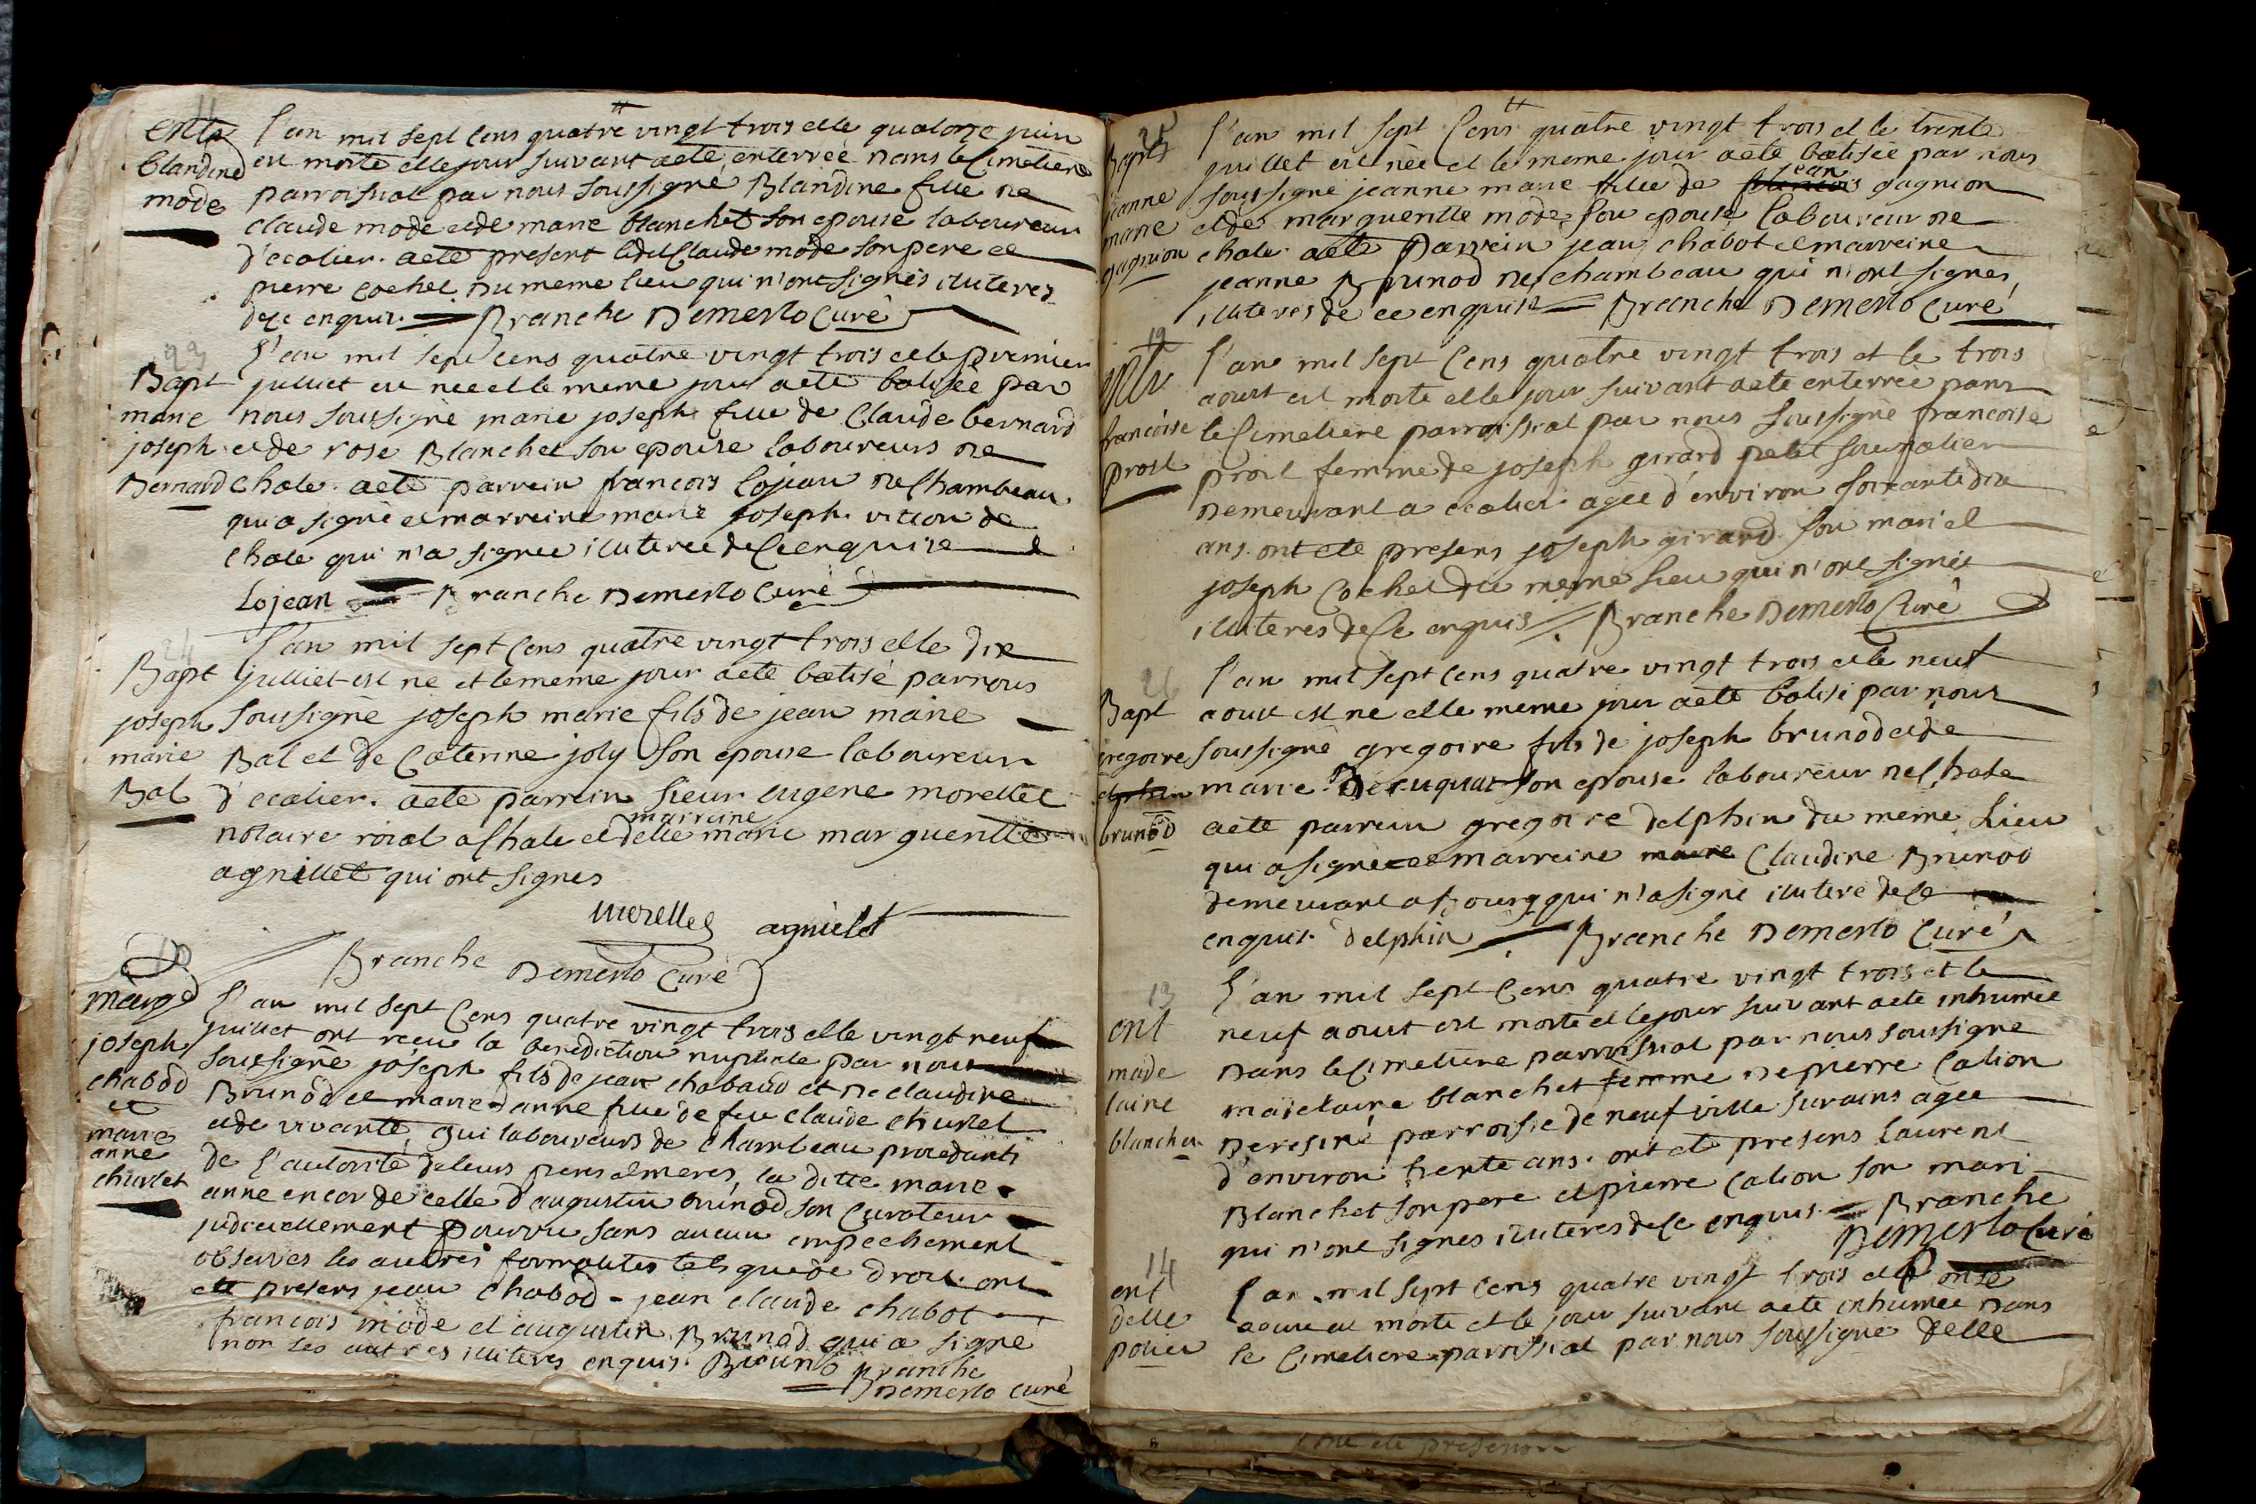 11
ent
blandine
mode
l'an mil sept cens quatre vingt trois et le quatorze juin
est morte et le jour suivant a eté enterreé dans le cimetiere
parroissial par nous soussigné Blandine fille de
claude mode et de marie blanchet son epouse laboureur
d'ecolier. a eté present ledit Claude mode son pere et
pierre cochet du meme lieu qui n'ont signés iliteres
de ce enquis. Branche Demerlo Curé
23
Bapt
marie
joseph
Bernard
l'an mil sept cens quatre vingt trois et le premier
julliet est neé et le meme jour a eté batiseé par
nous soussigné marie joseph fille de Claude bernard
et de rose Blanchet son epouse laboureurs de
chale. a eté parrein francois Lojean de Chambeau
qui a signé et marreine marie joseph vition de
chale qui n'a signeé ilitereé de ce enquise
Lojean Branche Demerlo Curé
24
Bapt
joseph
marie
Bal
l'an mil sept cens quatre vingt trois et le dix
julliet est né et le meme jour a eté batisé par nous
soussigné joseph marie fils de jean marie
Bal et de Caterine joly son epouse laboureur
d'ecolier. a eté parrein sieur eugene morellet
notaire roial a chale et delle marreine marie margueritte
agniellet qui ont signes
Morellet agnielet
Branche Demerlo Curé
10
mariage
joseph
chabod
et
marie
anne
churlet
l'an mil sept cens quatre vingt trois et le vingt neuf
juillet ont recu la benediction nuptiale par nous
soussigné joseph fils de jean chabaud et de claudine
Brunôd et marie anne fille de feu claude churlet
et de vivante, gui laboureurs de chambeau procedants
de l'autorité de leurs peres et meres, la ditte marie
anne encor de celle d'augustin brunod son curateur
judiciellement pourvu sans aucun empechement
observes les autres formalites tels que de droit. ont
eté presens jean Chabod - jean claude chabot
francois mode et augustin Brunod qui a signé
non les autres iliteres enquis. Bruno Branche
Demerlo curé
25
Bapt
jeanne
marie
gagnion
l'an mil sept cens quatre vingt trois et le trente
juillet est neé et le meme jour a eté batiseé par nous
soussigné jeanne marie fille de francois jean gagnion
et de margueritte mode son epouse laboureur de
chale a eté Parrein jean chabot et marreine
jeanne Brunod de chambeau qui n'ont signes
iliteres de ce enquis Branche Demerlo Curé
12
ent
francoise
prost
l'an mil sept cens quatre vingt trois et le trois
aoust est morte et le jour suivant a eté enterreé dans
le cimetiere parroissial par nous soussigné francoise
prost femme de joseph girard petit journalier
Demeurant a ecolier ageé d'environ soixante dix
ans. ont eté presens joseph girard son mari et
joseph Cochet du meme lieu qui n'ont signés
iliteres de ce enquis Branche Demerlo Curé
26
Bapt
gregoire
delphin
brunod
l'an mil sept cens quatre vingt trois et le neuf
aoust est né et le meme jour a eté batisé par nous
soussigné gregoire fils de joseph brunod et de
marie son epouse laboureur de chale
a eté parrein gregoire delphin du meme lieu
qui a signé et marreine marie Claudine Brunod
demeurant a bourg qui n'a signé ilitere de ce
enquis. delphin Branche Demerlo Curé
13
ent
made
laine
blanchet
l'an mil sept cens quatre vingt trois et le
neuf aoust est morte et le jour suivant a eté inhumeé
dans le cimetiere parroissial par nous soussigné
madelaine blanchet femme de pierre Calion
de resiné parroisse de neufville sur ains ageé
d'environ trente ans. ont eté presens laurent
Blanchet son pere et pierre Calion son mari
qui n'ont signes iliteres de ce enquis. Branche
Demerlo Curé
14
ent
delle
l'an mil sept cens quatre vingt trois et le onse
aoust est morte et le jour suivant a eté inhumeé dans
le cimetiere parroissial par nous soussigné delle